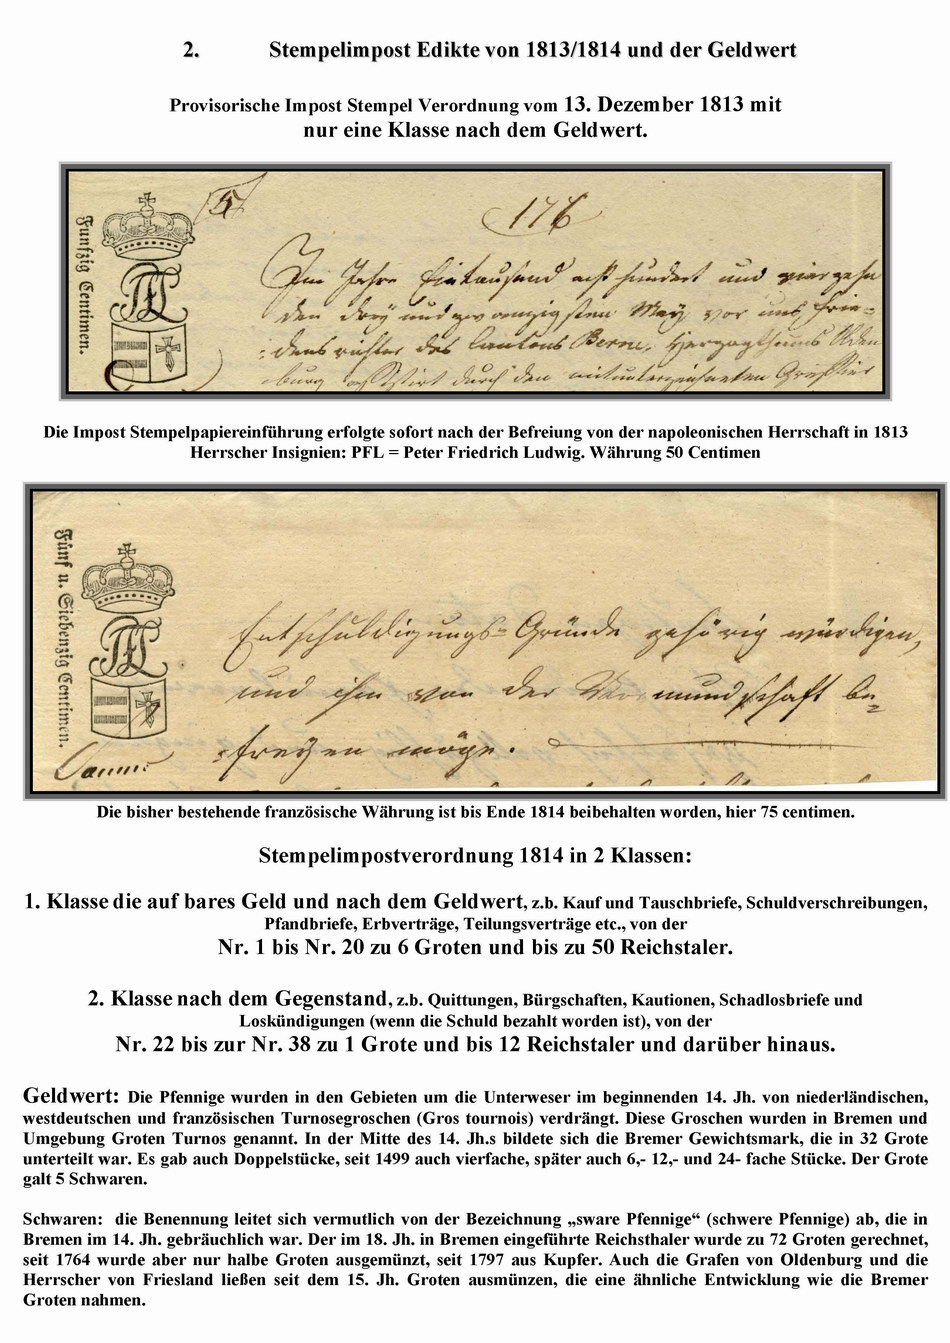 2. Stempelimpost Edikte von 1813/1814 und der Geldwert
Provisorische Impost Stempel Verordnung vom 13. Dezember 1813 mit
nur eine Klasse nach dem Geldwert.
Funfzig Centimen.
5
176
Im Jahre Eintausend acht hundert und vierzehn
den drey und zwanzigsten May vor uns Frie-
densrichter des Cantons Berne, Herzogthums Olden
burg assistirt durch den mitunterzeichneten Greffier
PFL
Die Impost Stempelpapiereinführung erfolgte sofort nach der Befreiung von der napoleonischen Herrschaft in 1813
Herrscher Insignien: PFL = Peter Friedrich Ludwig. Währung 50 Centimen
Fünf u. Siebenzig Centimen.
PFL
Entschuldigungs-Gründe gehörig würdigen,
und ihn von der Vormundschaft be-
freyen möge.
Die bisher bestehende französische Währung ist bis Ende 1814 beibehalten worden, hier 75 centimen.
Stempelimpostverordnung 1814 in 2 Klassen:
1. Klasse die auf bares Geld und nach dem Geldwert, z.b. Kauf und Tauschbriefe, Schuldverschreibungen,
Pfandbriefe, Erbverträge, Teilungsverträge etc., von der
Nr. 1 bis Nr. 20 zu 6 Groten und bis zu 50 Reichstaler.
2. Klasse nach dem Gegenstand, z.b. Quittungen, Bürgschaften, Kautionen, Schadlosbriefe und
Loskündigungen (wenn die Schuld bezahlt worden ist), von der
Nr. 22 bis zur Nr. 38 zu 1 Grote und bis 12 Reichstaler und darüber hinaus.
Geldwert: Die Pfennige wurden in den Gebieten um die Unterweser im beginnenden 14. Jh. von niederländischen,
westdeutschen und französischen Turnosegroschen (Gros tournois) verdrängt. Diese Groschen wurden in Bremen und
Umgebung Groten Turnos genannt. In der Mitte des 14. Jh.s bildete sich die Bremer Gewichtsmark, die in 32 Grote
unterteilt war. Es gab auch Doppelstücke, seit 1499 auch vierfache, später auch 6,- 12,- und 24- fache Stücke. Der Grote
galt 5 Schwaren.
Schwaren: die Benennung leitet sich vermutlich von der Bezeichnung „sware Pfennige“ (schwere Pfennige) ab, die in
Bremen im 14. Jh. gebräuchlich war. Der im 18. Jh. in Bremen eingeführte Reichsthaler wurde zu 72 Groten gerechnet,
seit 1764 wurde aber nur halbe Groten ausgemünzt, seit 1797 aus Kupfer. Auch die Grafen von Oldenburg und die
Herrscher von Friesland ließen seit dem 15. Jh. Groten ausmünzen, die eine ähnliche Entwicklung wie die Bremer
Groten nahmen.